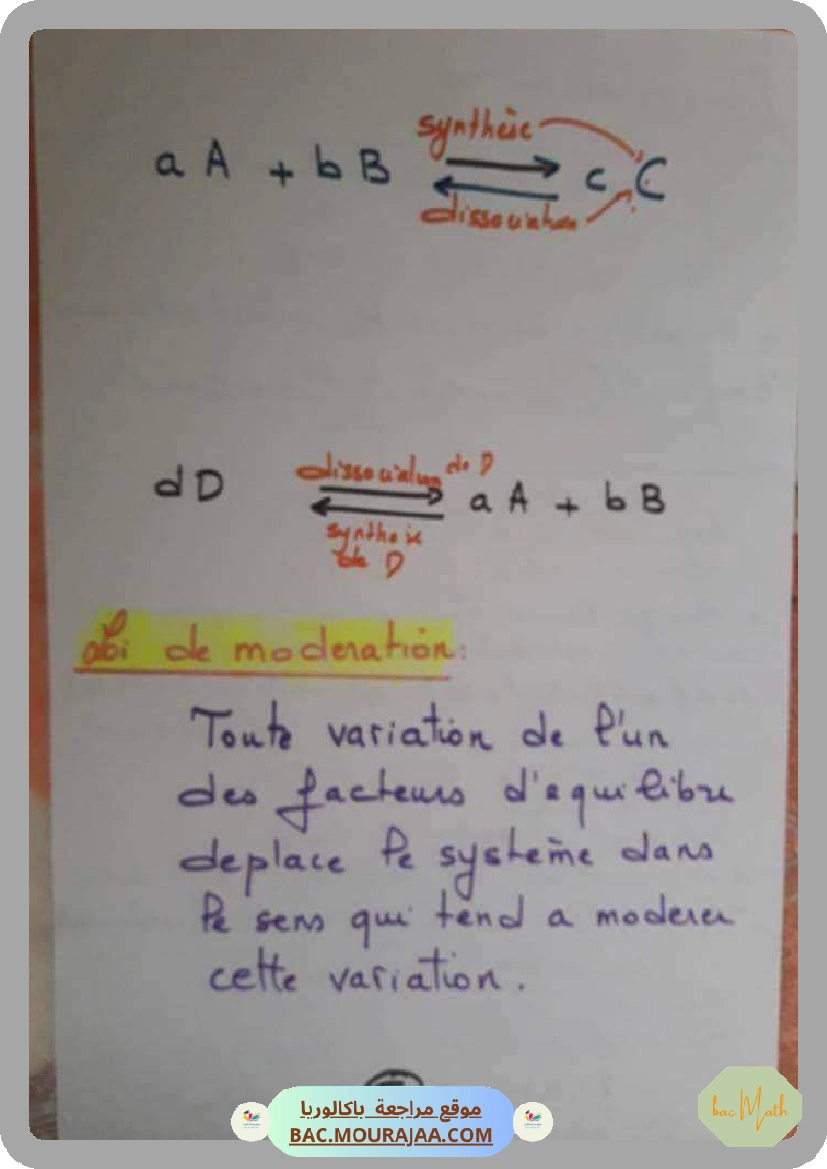 synthèse
a A + b B ⇌ c C
dissociation
dissociation de D
d D ⇌ a A + b B
synthèse
de D
Loi de moderation:
Toute variation de l'un
des facteurs d'equilibre
deplace le système dans
le sens qui tend a moderer
cette variation.
موقع مراجعة باكالوريا
BAC.MOURAJAA.COM
bac Math